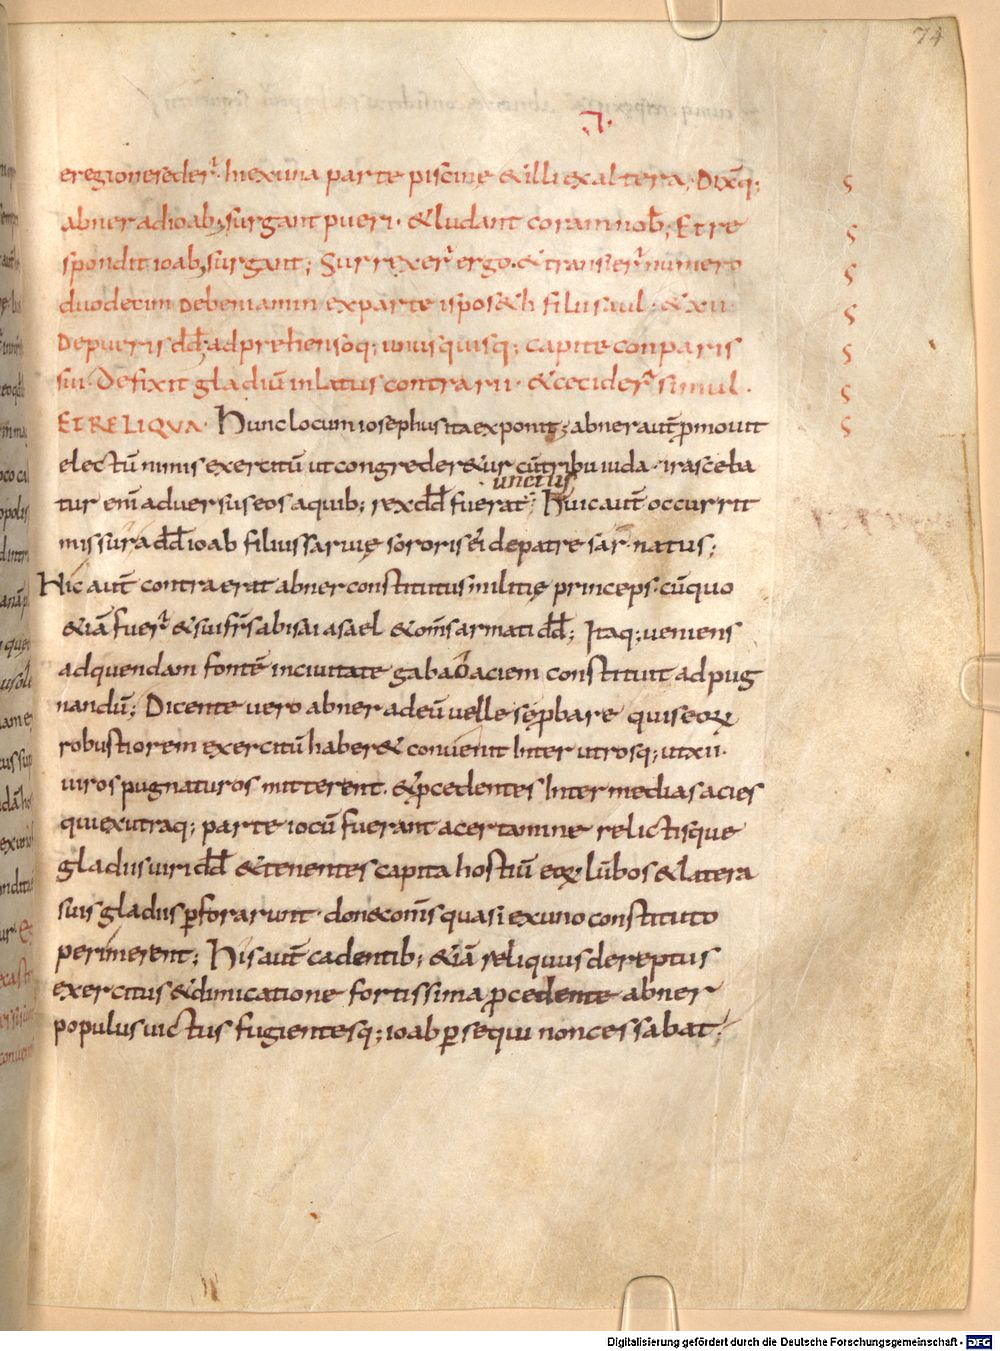 74
eregione seder̄. hi ex una parte piscinę & illi ex altera; Dixq̄;
abner ad ioab; surgant pueri. & ludant coram nob̄; Et re
spondit ioab; surgant; Surrexer̄ ergo. & transier̄ numero
duodecim de beniamin ex parte isbos&h filii saul. & xii
De pueris dd̄; adprehensoq; unusquisq; capite conparis
sui. Defixit gladiū in latus contrarii. & cecider̄ simul.
ET RELIQVA. Hunc locum iosephus ita exponit; abner aut̄ p̄mouit
electū nimis exercitū ut congreder&ur cū tribu iuda. irasceba
unctus
tur eni ̄ aduersus eos a quib; rex dd̄ fuerat; Huic aut̄ occurrit
missura dd̄ ioab filius saruię sororis ei de patre sar natus;
Hic aut̄ contra erat abner constitutus militię princeps. cū quo
& iā fuer̄ & sui fr̄s abisai asael & om̄s armati dd̄; Itaq; ueniens
ad quendam fontē in ciuitate gabaō aciem constituit ad pug
nandū; Dicente uero abner ad eū uelle se p̄bare quis eoꝝ
robustiorem exercitū haber& conuenit inter utrosq; ut xii.
uiros pugnaturos mitterent. & p̄cedentes inter medias acies
qui ex utraq; parte iocū fuerant a certamine relictisque
gladiis uiri dd̄ & tenentes capita hostiū eoꝝ lūbos & latera
suis gladiis ꝑforarunt. donec om̄s quasi ex uno constituto
perimerent; His aut̄ cadentib; & iā reliquus dereptus
exercitus & dimicatione fortissima p̄cedente abner
populus uictus fugientesq; ioab ꝑsequi non cessabat;
Digitalisierung gefördert durch die Deutsche Forschungsgemeinschaft - DFG